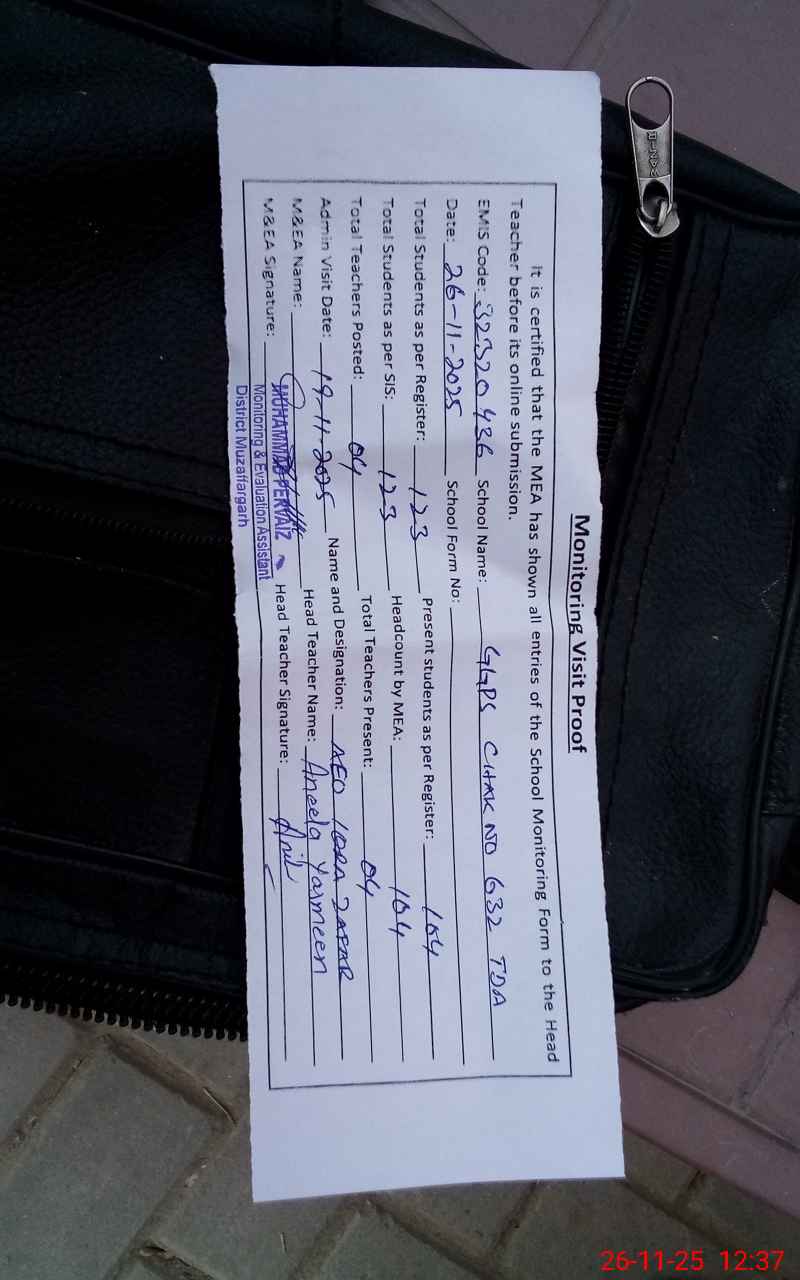 Monitoring Visit Proof
It is certified that the MEA has shown all entries of the School Monitoring Form to the Head
Teacher before its online submission.
EMIS Code: 32320436 School Name: GGPS CHAK NO 632 TDA
Date: 26-11-2025 School Form No:
Total Students as per Register: 123 Present students as per Register: 104
Total Students as per SIS: 123 Headcount by MEA: 104
Total Teachers Posted: 04 Total Teachers Present: 04
Admin Visit Date: 19-11-2025 Name and Designation: AEO IQRA ZAFAR
M&EA Name: Head Teacher Name: Aneela Yasmeen
M&EA Signature: MUHAMMAD PERVAIZ Head Teacher Signature:
Monitoring & Evaluation Assistant
District Muzaffargarh
26-11-25 12:37